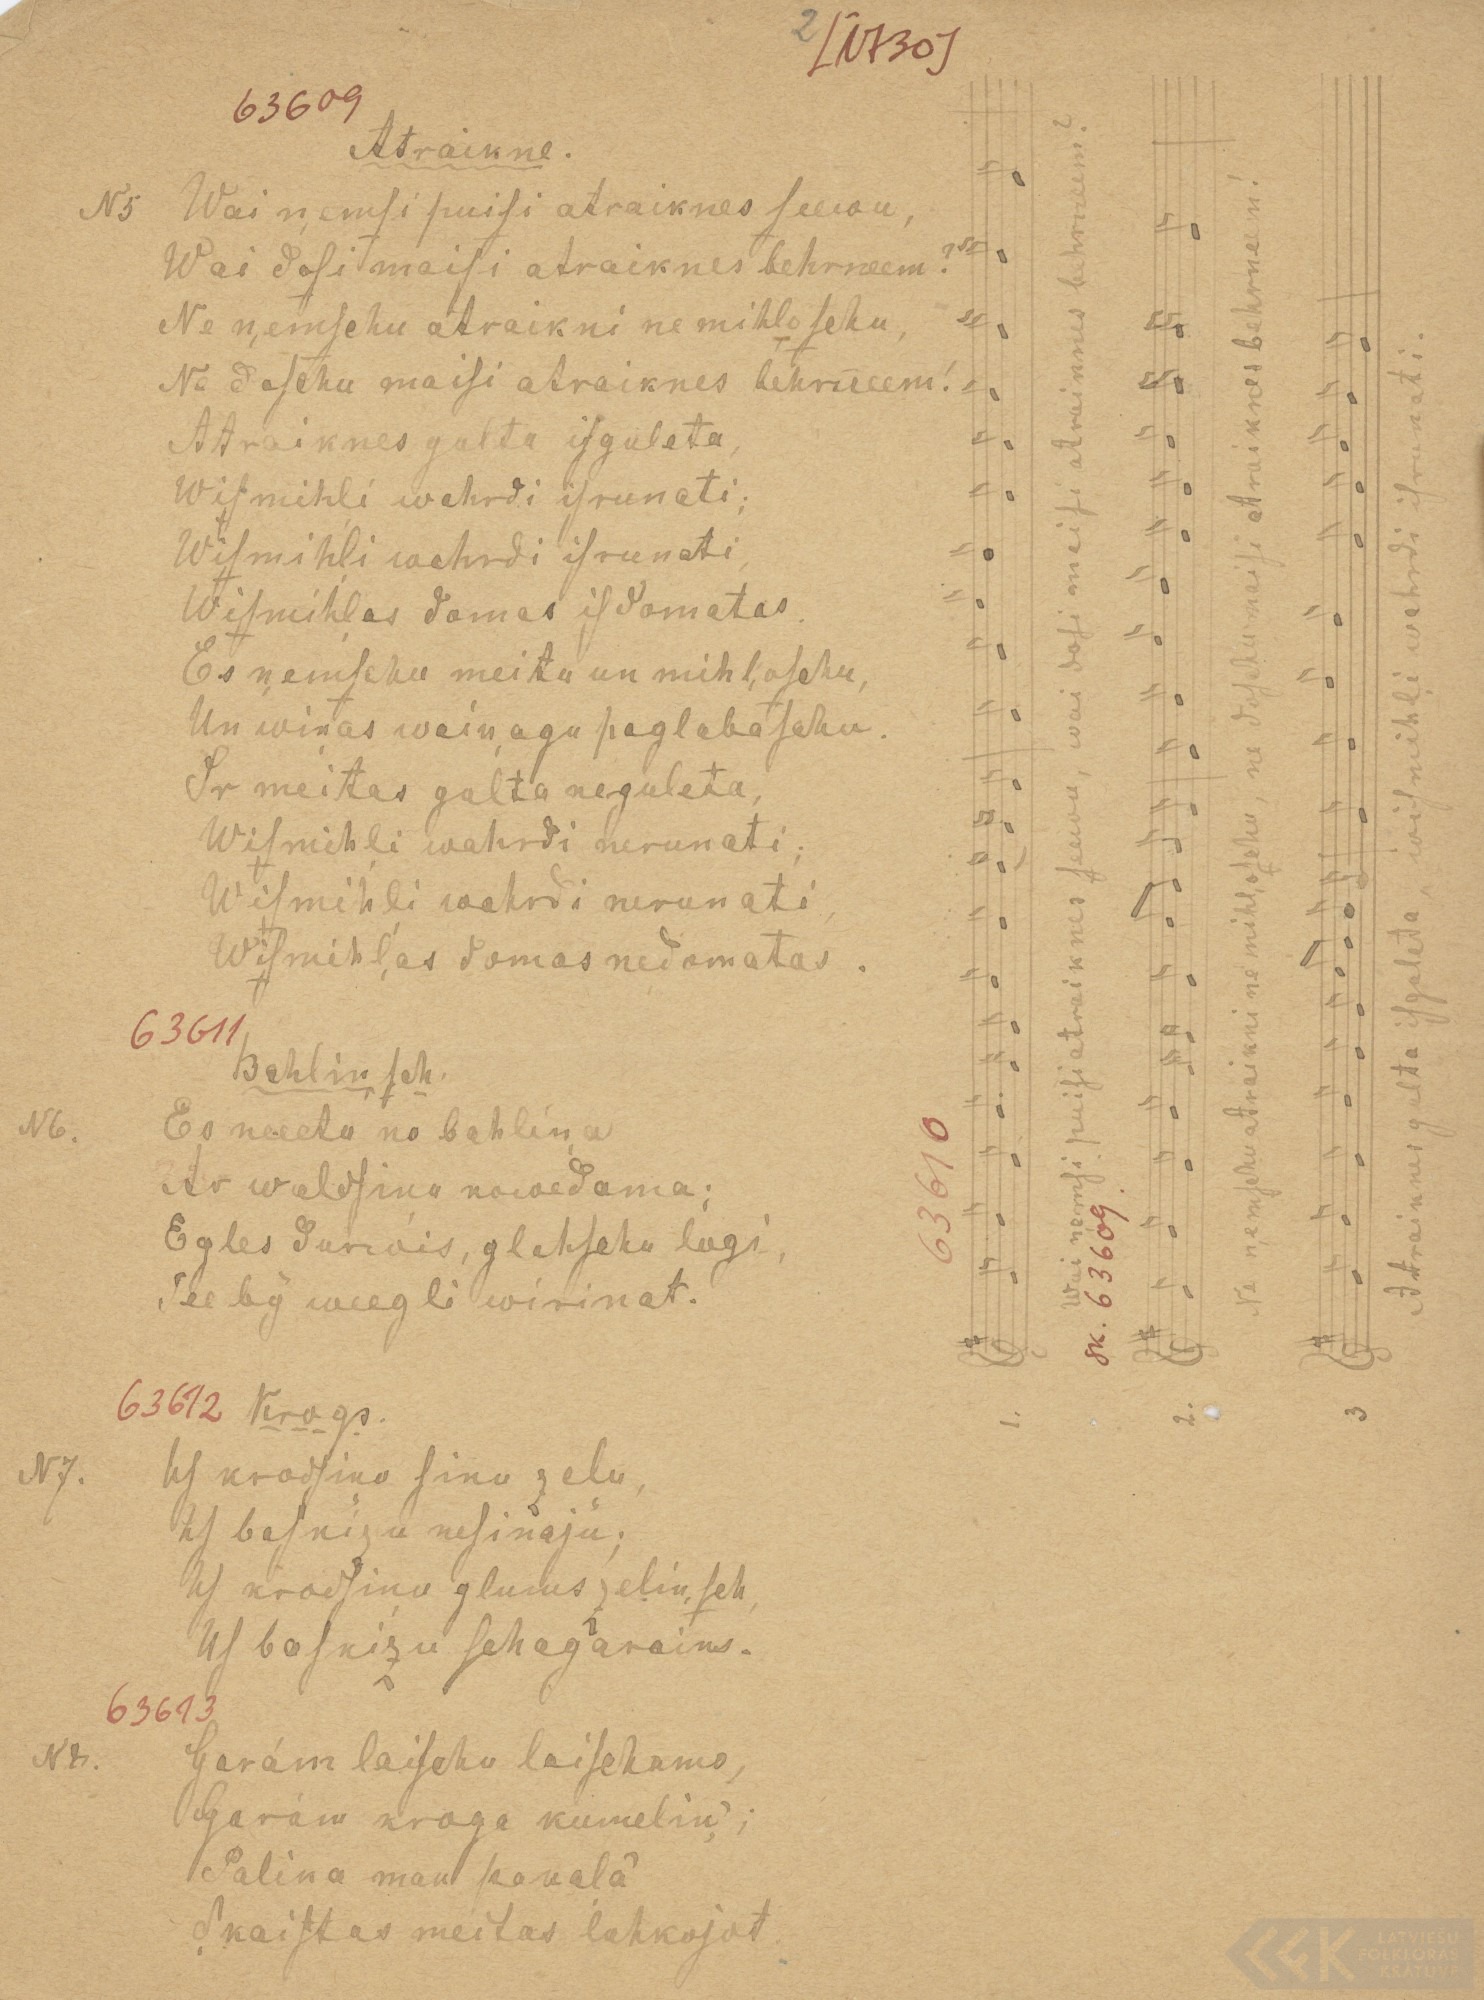 2 [1730]
63609
Atraikne.
N5 Wai n̦emsi puisi atraiknes seewu,
Wai dosi maisi atraiknes behrneem?
Ne n̦emschu atraikni ne mihl̦oschu,
Ne doschu maisi atraiknes behrneem!
Atraiknes gulta isguleta,
Wismihl̦i wahrdi isrunati;
Wismihl̦i wahrdi isrunati,
Wismihl̦as domas isdomatas.
Es n̦emschu meitu un mihl̦oschu,
Un win̦as wain̦agu paglabaschu.
Ir meitas gulta neguleta,
Wismihl̦i wahrdi nerunati;
Wismihl̦i wahrdi nerunati,
Wismihl̦as domas nedomatas.
63611
Bahlin̦sch.
N6. Es neeetu no bahlin̦a
Ar waldsinu nowedama;
Egles durwis, glahschu logi,
Tee by weegli wirinat.
63612 Krogs.
N7. Us krodsin̦a sinu zelu,
Us basnizu nesinaju;
Us krodsin̦u glums zelin̦sch,
Us basnizu schagarains.
63613
N8. Garám laischu laischamo,
Garám kroga kumelin̦;
Palika man pakalà
Skaistas meitas lahkojot
63610
1.
Wai n̦emsi puisi atraiknes seewu, wai dosi maisi atraiknes behrneem?
sk. 63609.
2.
Ne n̦emschu atraikni ne mihl̦oschu, ne doschu maisi atraiknes behrneem!
3
Atraiknes gulta isguleta, wismihl̦i wahrdi isrunati.
LATVIEŠU
FOLKLORAS
KRĀTUVE